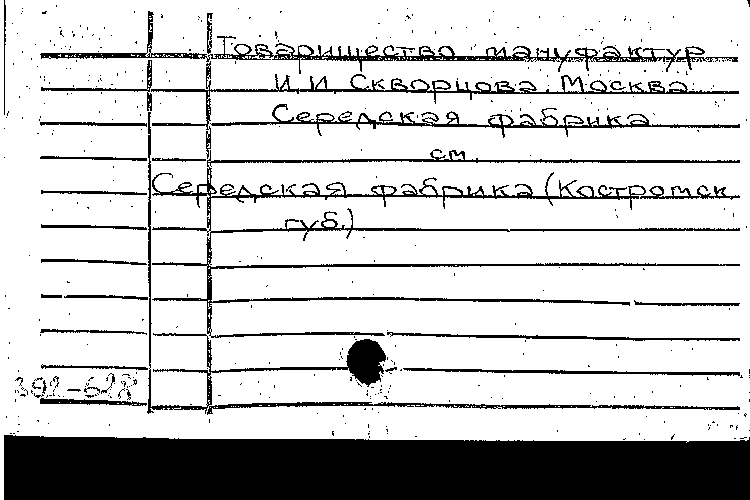 Товарищество мануфактур
И.И. Скворцова. Москва.
Середская фабрика
см.
Середская фабрика (Костромск.
губ.)
392-628